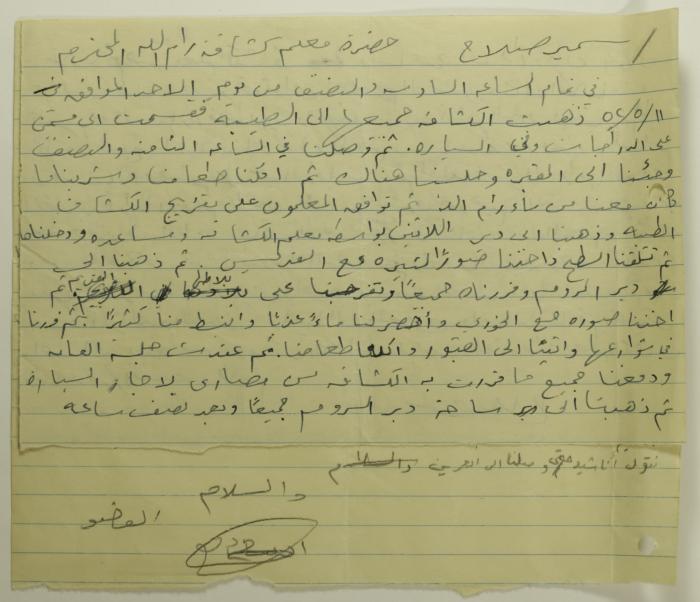 سمير صلاح حضرة معلم كشافة رام الله المحترم
في تمام الساعه السادسه والنصف من يوم الاحد الموافقه في
٥٢/٥/١١ ذهبت الكشافه جميعها الى الطيبة فقسمت الى قسمين
على الدراجات وفي السياره. ثم وصلنا في الساعه الثامنه والنصف
وجئنا الى المقبره وجلسنا هناك ثم اكلنا طعامنا وشربنا ما
كان معنا من ماء رام الله ثم توافقه المعلمون على تفريج الكشافة
الطيبه وذهبنا الى دير اللاتين بواسطة معلم الكشافه ومساعده ودخلناه
ثم تلقنا السطح واخذنا صورًا كثيره مع القديس ثم ذهبنا الى
دير الروم وفررناه جميعًا وتفرجنا على ثم
اخذنا صوره مع الخوري وأحضر لنا ماءً عذبًا وانبسط منا كثيرًا ثم فررنا
في شوارعها واتينا الى القبور واكلنا طعامنا. ثم عقدت جلسة العامه
ودفعنا جميع ما قررت به الكشافه من مصاري لاجار السيارة
ثم ذهبنا الى ساحة دير الروم جميعًا وبعد نصف ساعه
نقول أناشيد حتى وصلنا الى العرين
والسلام
العضو